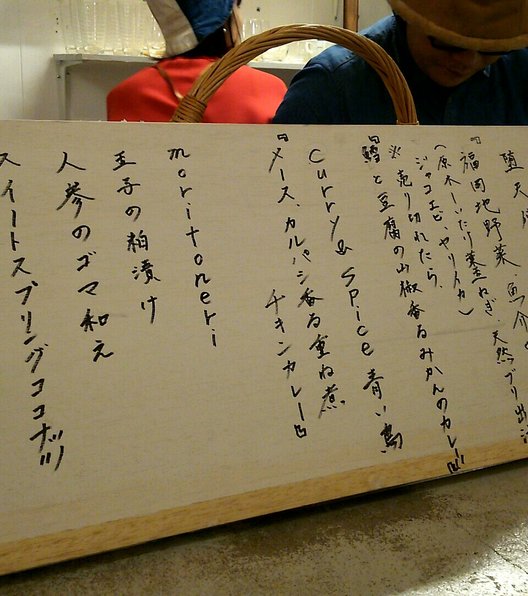 堕天
『福岡地野菜、魚介
(原木しいたけ、葉玉ねぎ、天然ブリ出汁
ジャコエビ、ヤリイカ)
※売り切れたら、
『鱈と豆腐の山椒香るみかんのカレー』
curry&spice 青い鳥
『メース、カルパシ香る重ね煮
チキンカレー』
moritoneri
玉子の粕漬け
人参のゴマ和え
スイートスプリングココナッツ